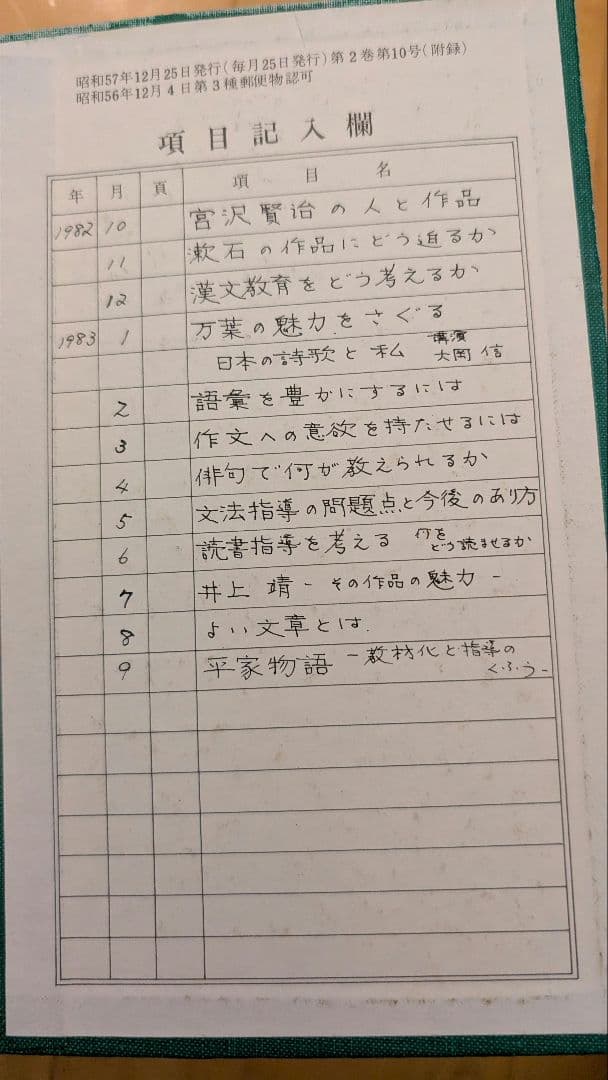 昭和57年12月25日発行(毎月25日発行)第2巻第10号(附録)
昭和56年12月4日第3種郵便物認可
項目記入欄
年 月 頁 項目名
1982 10 宮沢賢治の人と作品
11 漱石の作品にどう迫るか
12 漢文教育をどう考えるか
1983 1 万葉の魅力をさぐる
日本の詩歌と私 講演 大岡信
2 語彙を豊かにするには
3 作文への意欲を持たせるには
4 俳句で何が教えられるか
5 文法指導の問題点と今後のあり方
6 読書指導を考える 何をどう読ませるか
7 井上靖-その作品の魅力-
8 よい文章とは.
9 平家物語-教材化と指導のくふう-